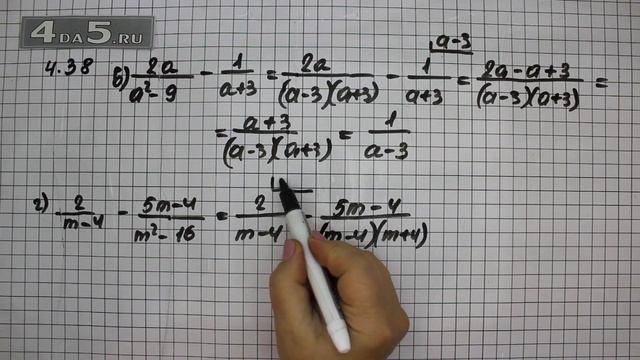 4DA5.RU
a-3
4.38 б) 2a/(a²-9) - 1/(a+3) = 2a/((a-3)(a+3)) - 1/(a+3) = (2a-a+3)/((a-3)(a+3)) =
= (a+3)/((a-3)(a+3)) = 1/(a-3)
г) 2/(m-4) - (5m-4)/(m²-16) = 2/(m-4) - (5m-4)/((m-4)(m+4))